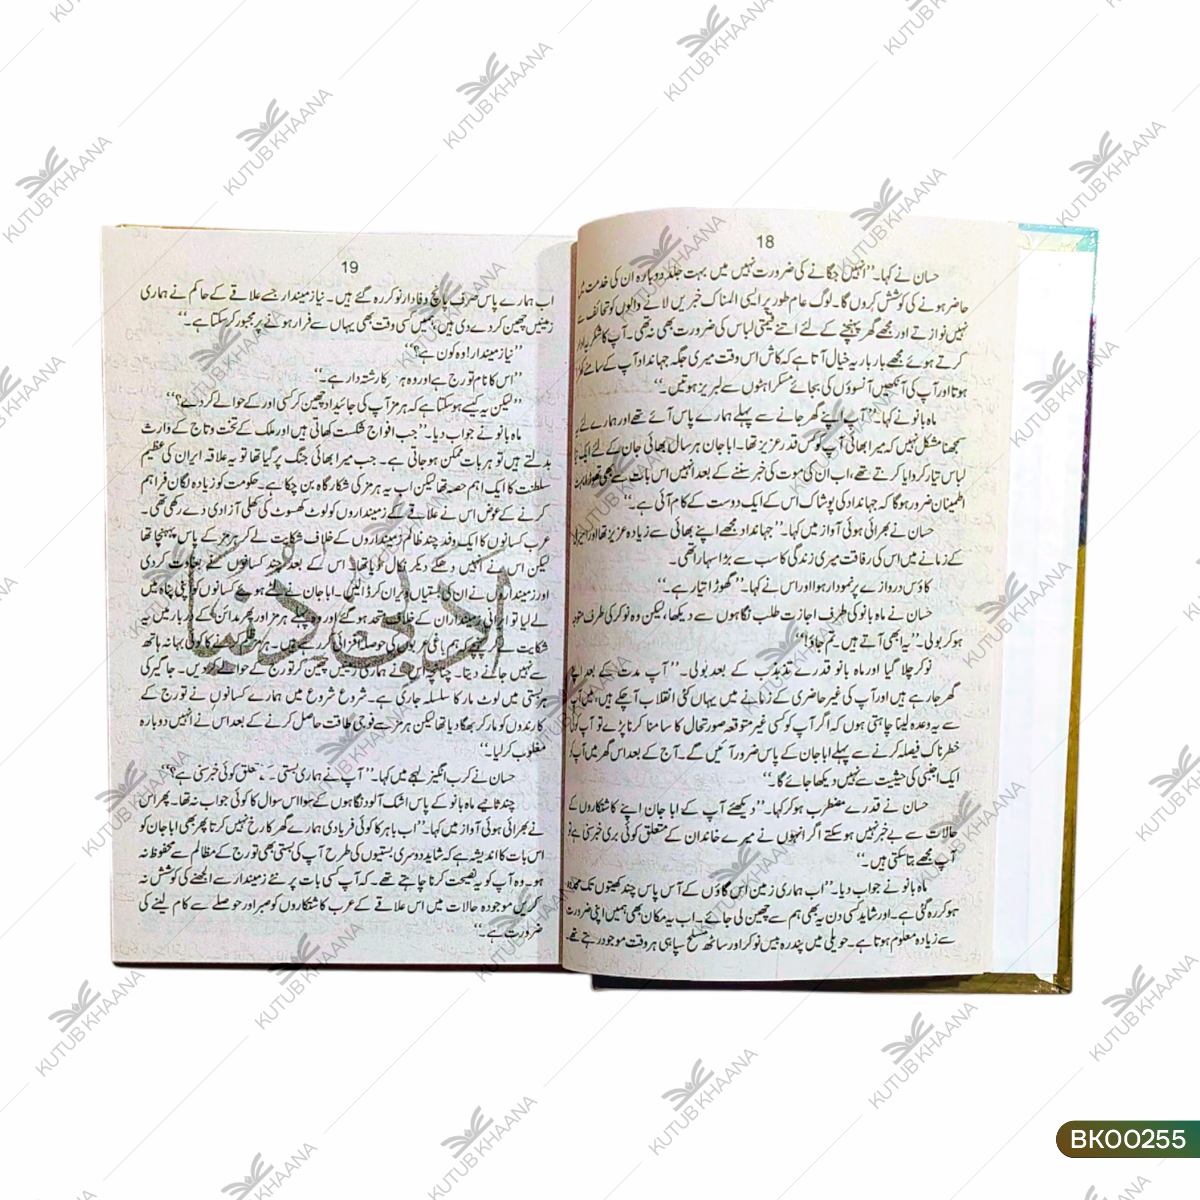 18
حسان نے کہا۔ ’’انہیں جگانے کی ضرورت نہیں میں بہت جلد دوبارہ ان کی خدمت میں
حاضر ہونے کی کوشش کروں گا۔ لوگ عام طور پر ایسی المناک خبریں لانے والوں کو تحائف سے
نہیں نوازتے اور مجھے گھر پہنچنے کے لئے اتنے قیمتی لباس کی ضرورت بھی نہ تھی۔ آپ کا شکریہ ادا
کرتے ہوئے مجھے بار بار یہ خیال آتا ہے کہ کاش اس وقت میری جگہ جہانداد آپ کے سامنے کھڑا
ہوتا اور آپ کی آنکھیں آنسوؤں کی بجائے مسکراہٹوں سے لبریز ہوتیں۔‘‘
ماہ بانو نے کہا۔ ’’آپ اپنے گھر جانے سے پہلے ہمارے پاس آئے تھے اور ہمارے لئے یہ
سمجھنا مشکل نہیں کہ میرا بھائی آپ کو کس قدر عزیز تھا۔ ابا جان ہر سال بھائی جان کے لئے ایک نیا
لباس تیار کروایا کرتے تھے، اب ان کی موت کی خبر سننے کے بعد انہیں اس بات سے بھی تھوڑا بہت
اطمینان ضرور ہوگا کہ جہانداد کی پوشاک اس کے ایک دوست کے کام آئی ہے۔‘‘
حسان نے بھرائی ہوئی آواز میں کہا۔ ’’جہانداد مجھے اپنے بھائی سے زیادہ عزیز تھا اور اسیری
کے زمانے میں اس کی رفاقت میری زندگی کا سب سے بڑا سہارا تھی۔
کاؤس دروازے پر نمودار ہوا اور اس نے کہا۔ ’’گھوڑا تیار ہے۔‘‘
حسان نے ماہ بانو کی طرف اجازت طلب نگاہوں سے دیکھا، لیکن وہ نوکر کی طرف متوجہ
ہو کر بولی۔ ’’یہ ابھی آتے ہیں۔ تم جاؤ!‘‘
نوکر چلا گیا اور ماہ بانو قدرے تذبذب کے بعد بولی۔ ’’آپ مدت کے بعد اپنے
گھر جا رہے ہیں اور آپ کی غیر حاضری کے زمانے میں یہاں کئی انقلاب آ چکے ہیں، میں آپ
سے یہ وعدہ لینا چاہتی ہوں کہ اگر آپ کو کسی غیر متوقعہ صورتحال کا سامنا کرنا پڑے تو آپ کوئی
خطرناک فیصلہ کرنے سے پہلے ابا جان کے پاس ضرور آئیں گے۔ آج کے بعد اس گھر میں آپ کو
ایک اجنبی کی حیثیت سے نہیں دیکھا جائے گا۔‘‘
حسان نے قدرے مضطرب ہو کر کہا۔ ’’دیکھئے آپ کے ابا جان اپنے کاشتکاروں کے
حالات سے بے خبر نہیں ہو سکتے اگر انہوں نے میرے خاندان کے متعلق کوئی بری خبر سنی ہے تو
آپ مجھے بتا سکتی ہیں۔‘‘
ماہ بانو نے جواب دیا۔ ’’اب ہماری زمین اس گاؤں کے آس پاس چند کھیتوں تک محدود
ہو کر رہ گئی ہے۔ اور شاید کسی دن یہ بھی ہم سے چھین لی جائے۔ اب یہ مکان بھی ہمیں اپنی ضرورت
سے زیادہ معلوم ہوتا ہے۔ حویلی میں پندرہ بیس نوکر اور ساٹھ مسلح سپاہی ہر وقت موجود رہتے تھے۔
19
اب ہمارے پاس صرف پانچ وفادار نوکر رہ گئے ہیں۔ نیا زمیندار جسے علاقے کے حاکم نے ہماری
زمینیں چھین کر دے دی ہیں ہمیں کسی وقت بھی یہاں سے فرار ہونے پر مجبور کر سکتا ہے۔‘‘
’’نیا زمیندار! وہ کون ہے؟‘‘
’’اس کا نام تورج ہے اور وہ کا رشتہ دار ہے۔‘‘
’’لیکن یہ کیسے ہو سکتا ہے کہ ہرمز آپ کی جائیداد چھین کر کسی اور کے حوالے کر دے؟‘‘
ماہ بانو نے جواب دیا۔ ’’جب افواج شکست کھاتی ہیں اور ملک کے تخت و تاج کے وارث
بدلتے ہیں تو ہر بات ممکن ہو جاتی ہے۔ جب میرا بھائی جنگ پر گیا تھا تو یہ علاقہ ایران کی عظیم
سلطنت کا ایک اہم حصہ تھا لیکن اب یہ ہرمز کی شکار گاہ بن چکا ہے۔ حکومت کو زیادہ لگان فراہم
کرنے کے عوض اس نے علاقے کے زمینداروں کو لوٹ کھسوٹ کی کھلی آزادی دے رکھی تھی۔
عرب کسانوں کا ایک وفد چند ظالم زمینداروں کے خلاف شکایت لے کر ہرمز کے پاس پہنچا تھا
لیکن اس نے انہیں دھکے دیکر نکال دیا تھا۔ اس کے بعد چند کسانوں نے بغاوت کر دی
اور زمینداروں نے ان کی بستیاں ویران کر ڈالیں۔ ابا جان نے لٹے ہوئے کسانوں کو اپنی پناہ میں
لے لیا تو ایرانی زمیندار ان کے خلاف متحد ہو گئے اور وہ پہلے ہرمز اور پھر مدائن کے دربار میں یہ
شکایت لے کر گئے کہ ہم باغی عربوں کی حوصلہ افزائی کر رہے ہیں۔ ہرمز کوئی بہانہ ہاتھ
سے نہیں جانے دیتا۔ چنانچہ اس نے ہماری زمینیں چھین کر تورج کے حوالے کر دیں۔ جاگیر کی
ہر بستی میں لوٹ مار کا سلسلہ جاری ہے۔ شروع شروع میں ہمارے کسانوں نے تورج کے
کارندوں کو مار کر بھگا دیا تھا لیکن ہرمز سے فوجی طاقت حاصل کرنے کے بعد اس نے انہیں دوبارہ
مغلوب کر لیا۔‘‘
حسان نے کرب انگیز لہجے میں کہا۔ ’’آپ نے ہماری بستی کے متعلق کوئی خبر سنی ہے؟‘‘
چند ثانیے ماہ بانو کے پاس اشک آلود نگاہوں کے سوا اس سوال کا کوئی جواب نہ تھا۔ پھر اس
نے بھرائی ہوئی آواز میں کہا۔ ’’اب باہر کا کوئی فریادی ہمارے گھر کا رخ نہیں کرتا پھر بھی ابا جان کو
اس بات کا اندیشہ ہے کہ شاید دوسری بستیوں کی طرح آپ کی بستی بھی تورج کے مظالم سے محفوظ نہ
ہو۔ وہ آپ کو یہ نصیحت کرنا چاہتے تھے۔ کہ آپ کسی بات پر نئے زمیندار سے الجھنے کی کوشش نہ
کریں موجودہ حالات میں اس علاقے کے عرب کاشتکاروں کو صبر اور حوصلے سے کام لینے کی
ضرورت ہے۔‘‘
ادبی دنیا
KUTUB KHAANA
BK00255